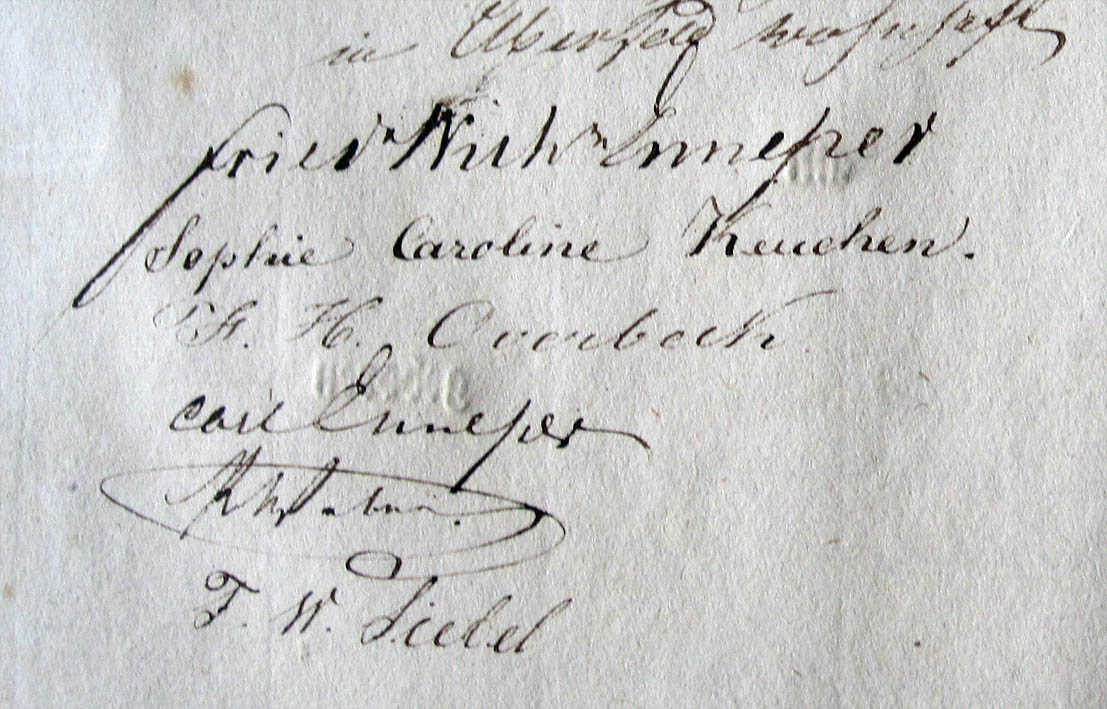 in Elberfeld wohnhaft
Friedr Wilhm Enneper
Sophie Caroline Keuchen.
H. Overbeck
Carl Enneper
F. W. Siebel